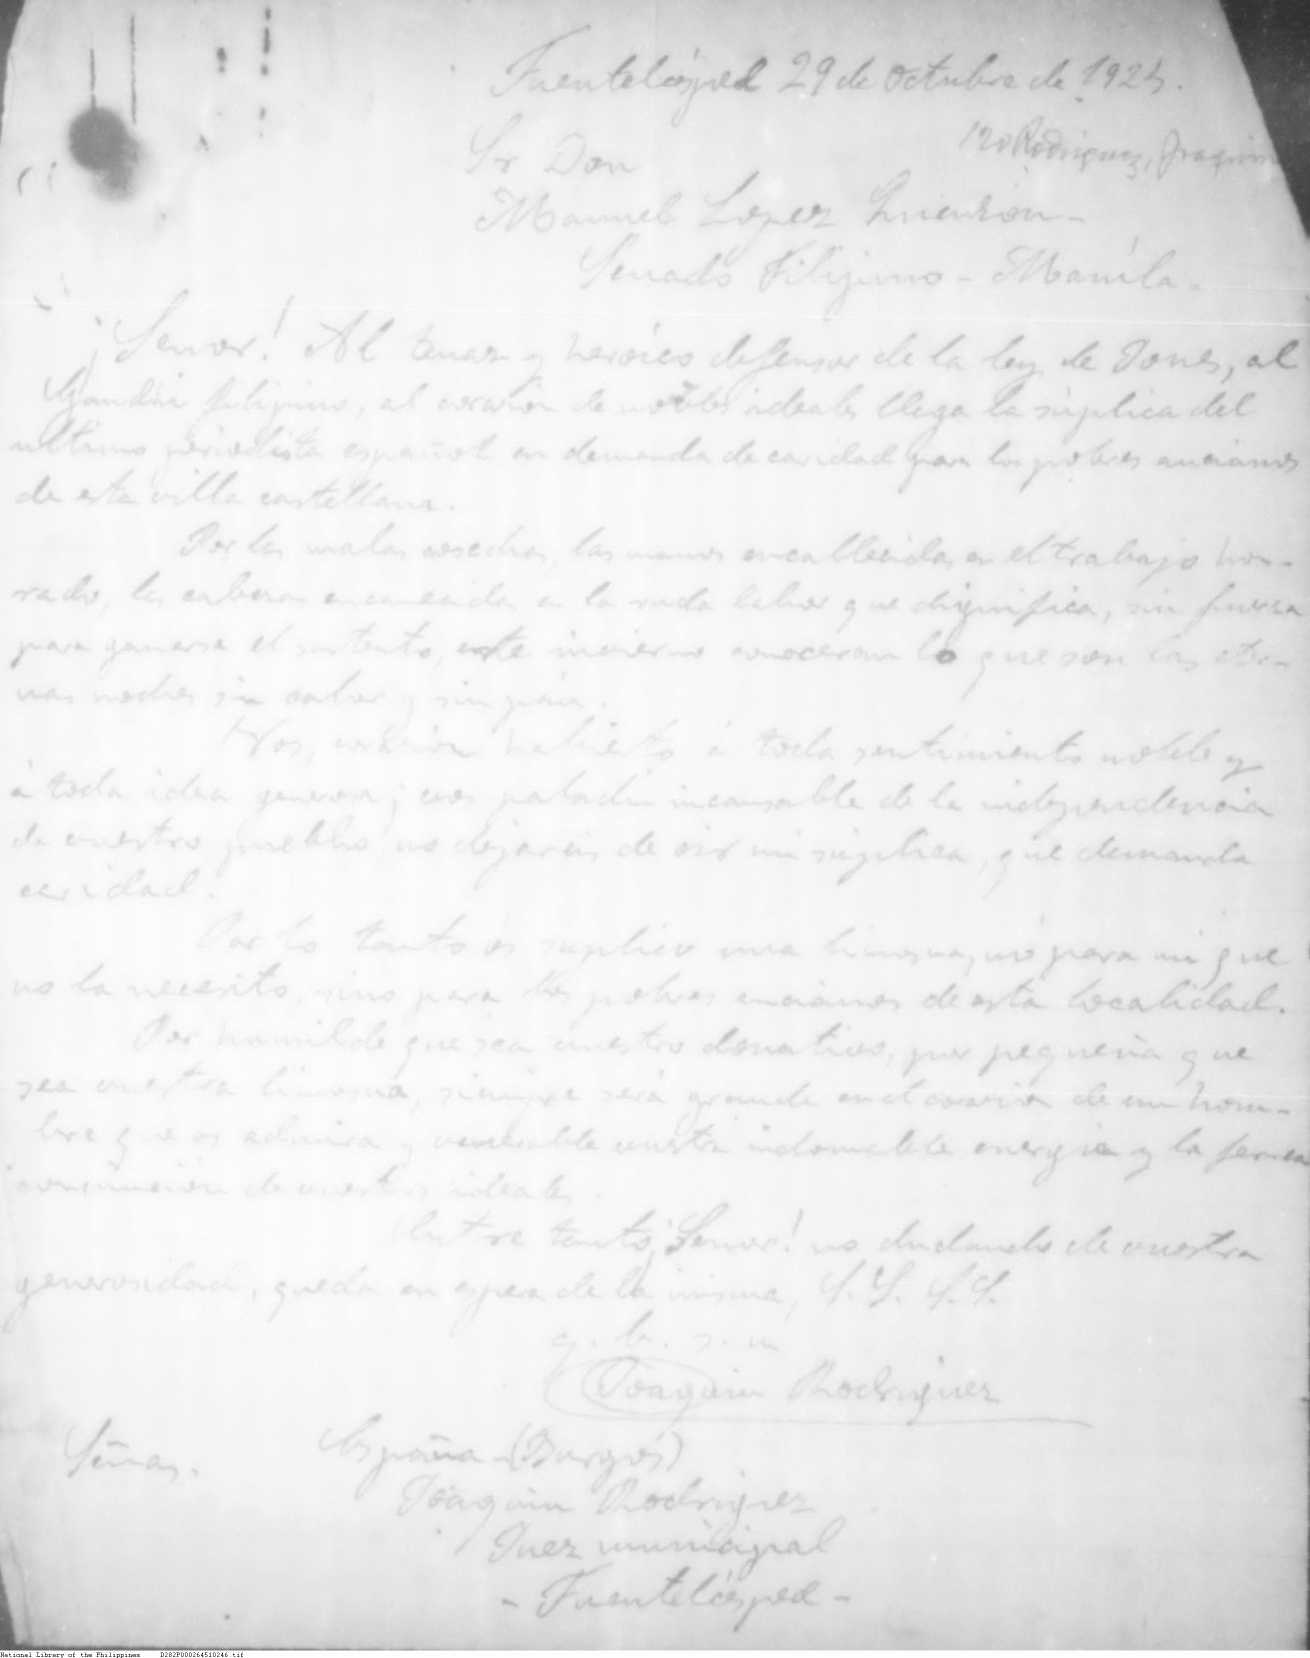 Fuentelcésped 29 de Octubre de 1924.
120 Rodriguez, Joaquin
Sr Don
Manuel Lopez
Senado Filipino - Manila.
¡Señor! Al tenaz y heróico defensor de la ley de Jones, al
filipino, al corazón de nobles ideales llega la súplica del
ultimo periodista español en demanda de caridad para los pobres ancianos
de esta villa castellana.
Por las malas cosechas, las manos encallecidas en el trabajo hon-
rado, las cabezas encanecidas en la ruda labor que dignifica, sin fuerza
para ganarse el sustento, este invierno conoceran lo que son las eter-
nas noches sin calor y sin pan.
Vos, corazón habierto á todo sentimiento noble y
á toda idea generosa; vos paladin incansable de la independencia
de vuestro pueblo, no dejareis de oir mi súplica, que demanda
caridad.
Por lo tanto os suplico una limosna, nó para mi que
no la necesito, sino para los pobres ancianos de esta localidad.
Por humilde que sea vuestro donativo, por pequeña que
sea vuestra limosna, siempre será grande en el corazón de un hom-
bre que os admira y vuestra indomable energia y la
de vuestros ideales.
Entre tanto ¡Señor! no dudando de vuestra
generosidad, queda en espera de la misma, S. S. S. S.
q. b. s. m
Joaquin Rodriguez
Señas. España (Burgos)
Joaquin Rodriguez
Juez municipal
- Fuentelcésped -
National Library of the Philippines D282P000264510246.tif